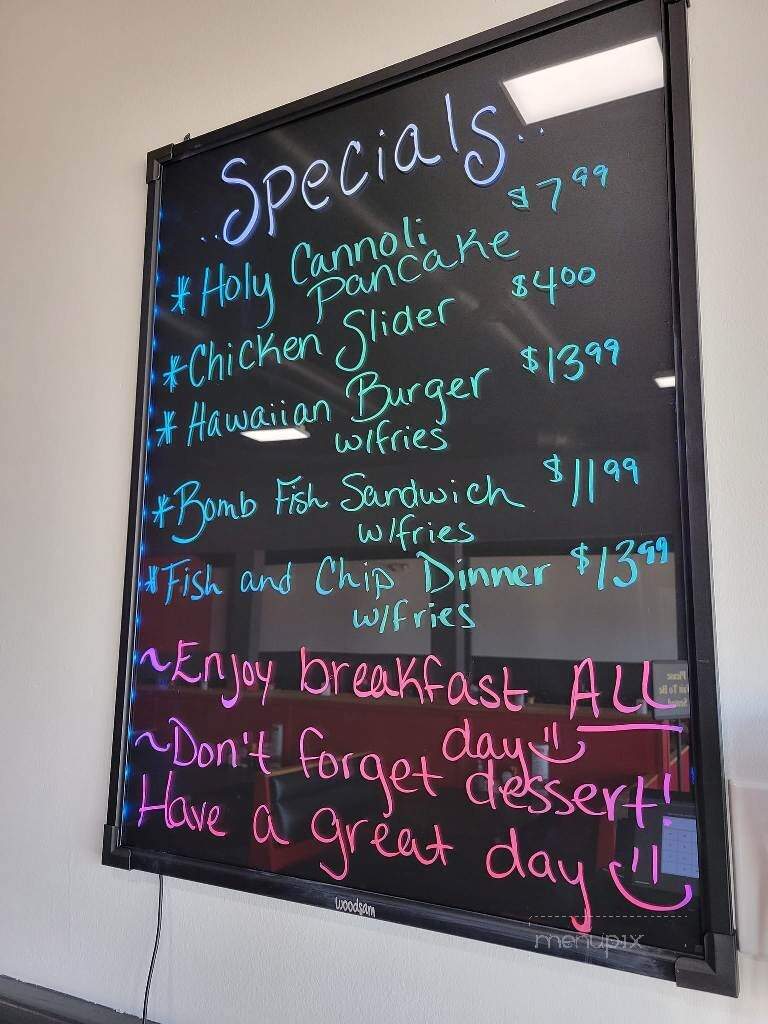 ..Specials..
*Holy Cannoli $7.99
Pancake
*Chicken Slider $4.00
*Hawaiian Burger $13.99
w/fries
*Bomb Fish Sandwich $11.99
w/fries
*Fish and Chip Dinner $13.99
w/fries
~Enjoy breakfast ALL
day
~Don't forget dessert!
Have a great day
woodsam
menupix
Please
Wait To Be
Seated